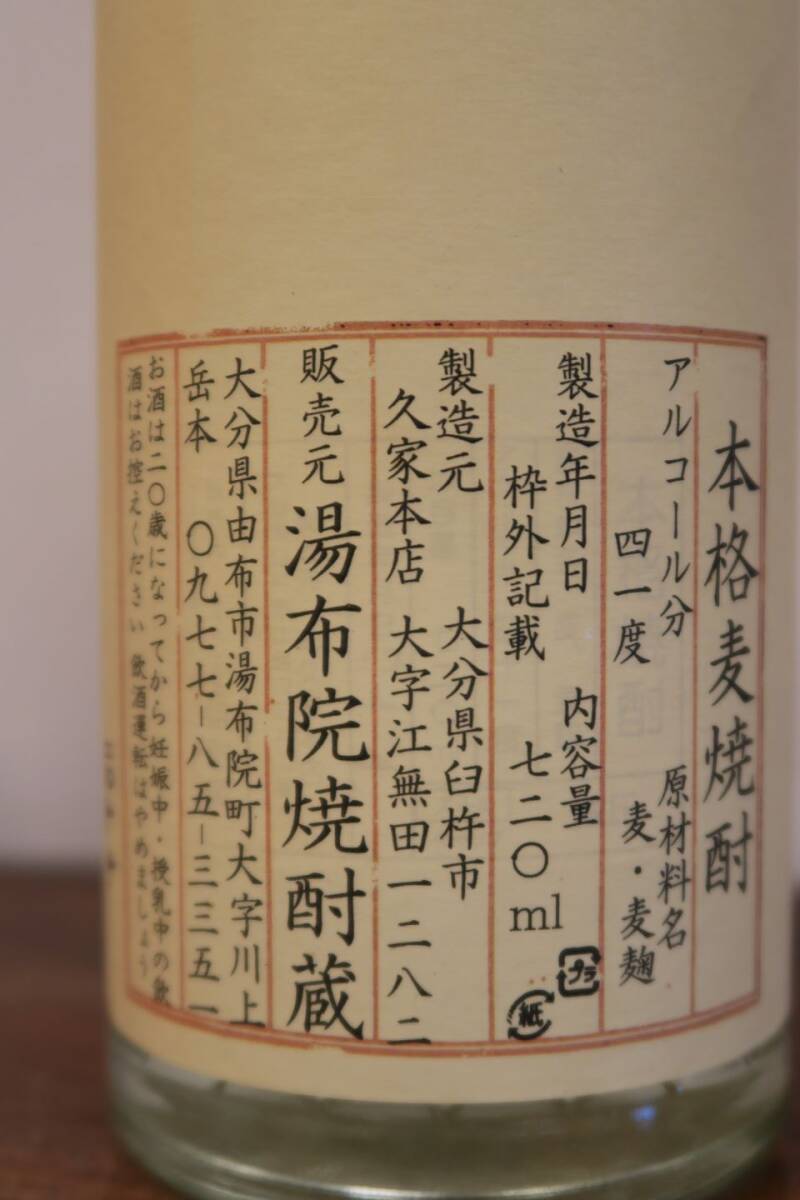 本格麦焼酎
アルコール分
四一度
原材料名
麦・麦麹
製造年月日
枠外記載
内容量
七二〇ml
プラ
紙
製造元
久家本店
大分県臼杵市
大字江無田一二八二
販売元 湯布院焼酎蔵
大分県由布市湯布院町大字川上
岳本 〇九七七-八五-三三五一
お酒は二〇歳になってから 妊娠中・授乳中の飲
酒はお控えください 飲酒運転はやめましょう